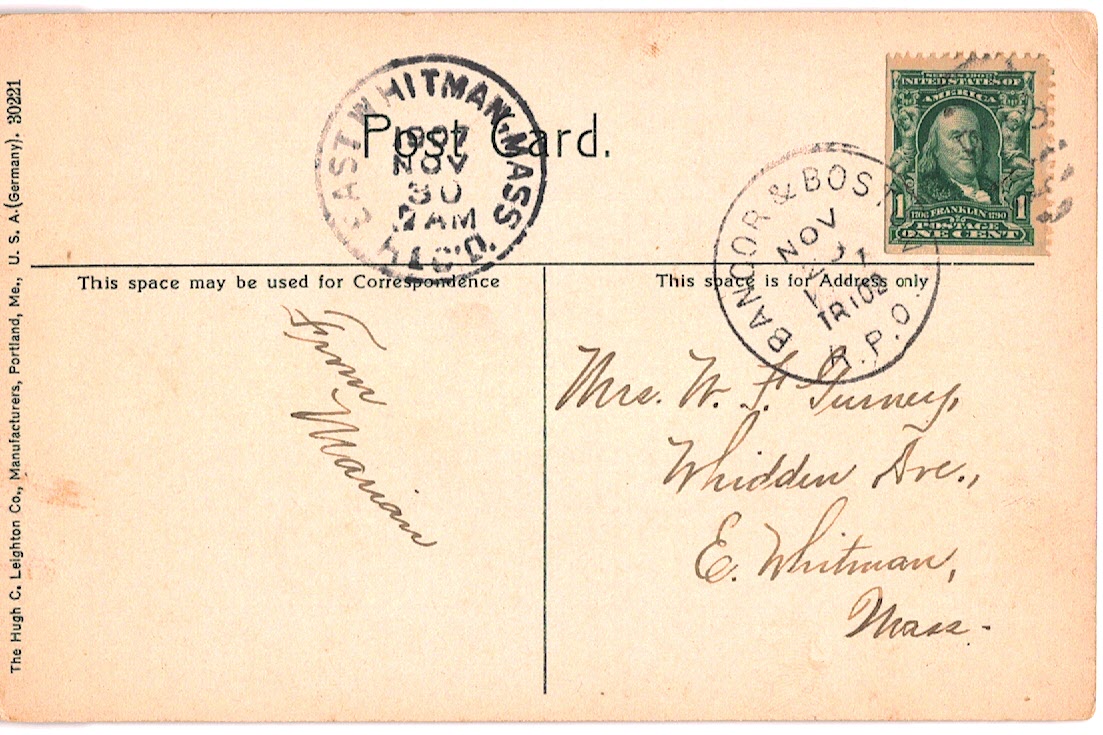 Post Card.
EAST WHITMAN, MASS.
1907
NOV
30
AM
REC'D.
BANGOR & BOS
NOV
TR 102
R.P.O.
SERIES 1902
UNITED STATES OF
AMERICA
1706 FRANKLIN 1790
POSTAGE
1 ONE CENT 1
This space may be used for Correspondence
This space is for Address only
From
Marian
Mrs. W. F. Gurney,
Whidden Ave.,
E. Whitman,
Mass.
The Hugh C. Leighton Co., Manufacturers, Portland, Me., U. S. A. (Germany). 30221